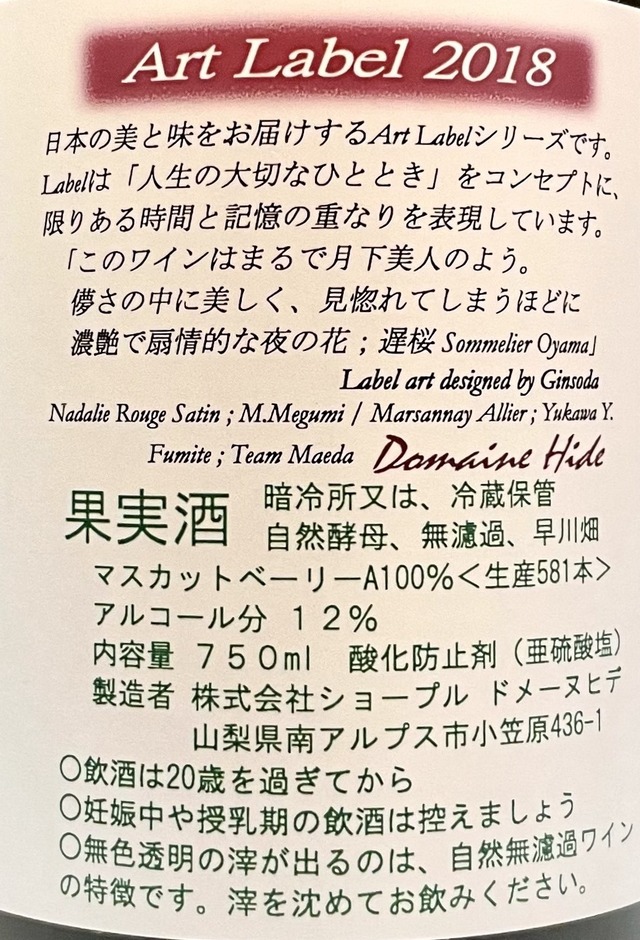 Art Label 2018
日本の美と味をお届けするArt Labelシリーズです。
Labelは「人生の大切なひととき」をコンセプトに、
限りある時間と記憶の重なりを表現しています。
「このワインはまるで月下美人のよう。
儚さの中に美しく、見惚れてしまうほどに
濃艶で扇情的な夜の花；遅桜 Sommelier Oyama」
Label art designed by Ginsoda
Nadalie Rouge Satin ; M.Megumi / Marsannay Allier ; Yukawa Y.
Fumite ; Team Maeda Domaine Hide
果実酒 暗冷所又は、冷蔵保管
自然酵母、無濾過、早川畑
マスカットベーリーA100%＜生産581本＞
アルコール分 １２％
内容量 ７５０ml 酸化防止剤（亜硫酸塩）
製造者 株式会社ショープル ドメーヌヒデ
山梨県南アルプス市小笠原436-1
○飲酒は20歳を過ぎてから
○妊娠中や授乳期の飲酒は控えましょう
○無色透明の滓が出るのは、自然無濾過ワイン
の特徴です。滓を沈めてお飲みください。